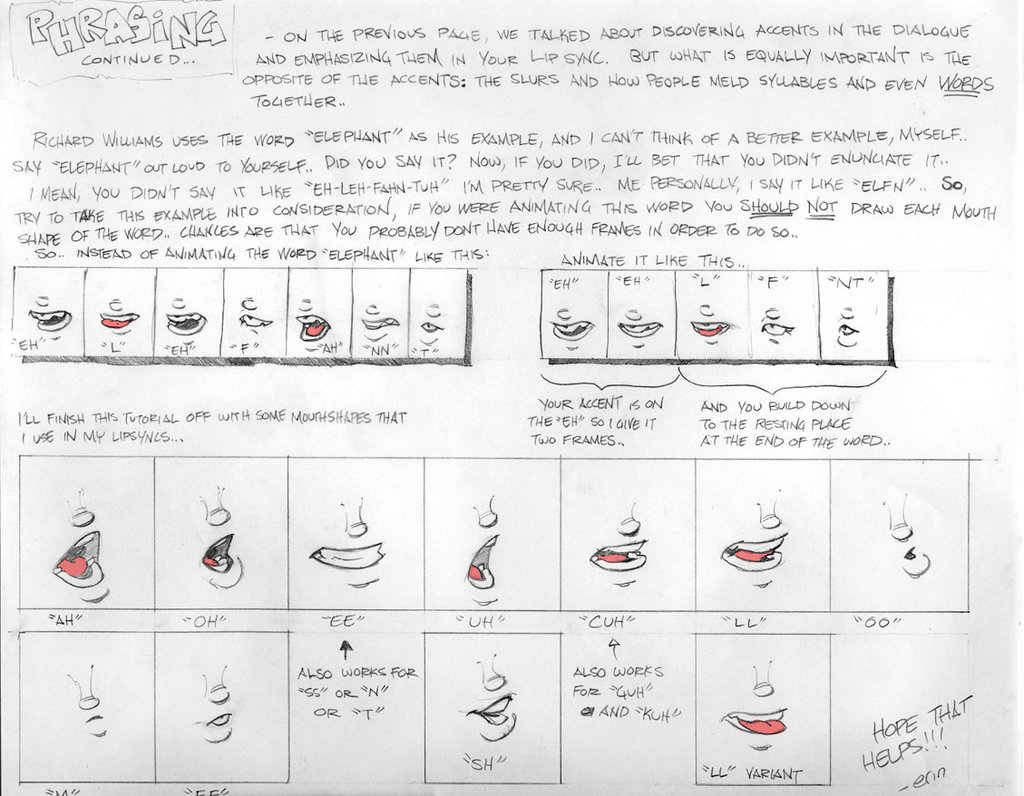 PHRASING
CONTINUED...
- ON THE PREVIOUS PAGE, WE TALKED ABOUT DISCOVERING ACCENTS IN THE DIALOGUE
AND EMPHASIZING THEM IN YOUR LIP SYNC. BUT WHAT IS EQUALLY IMPORTANT IS THE
OPPOSITE OF THE ACCENTS: THE SLURS AND HOW PEOPLE MELD SYLLABLES AND EVEN WORDS
TOGETHER..
RICHARD WILLIAMS USES THE WORD "ELEPHANT" AS HIS EXAMPLE, AND I CAN'T THINK OF A BETTER EXAMPLE, MYSELF..
SAY "ELEPHANT" OUT LOUD TO YOURSELF.. DID YOU SAY IT? NOW, IF YOU DID, I'LL BET THAT YOU DIDN'T ENUNCIATE IT..
I MEAN, YOU DIDN'T SAY IT LIKE "EH-LEH-FAHN-TUH" I'M PRETTY SURE.. ME PERSONALLY, I SAY IT LIKE "ELFN".. SO,
TRY TO TAKE THIS EXAMPLE INTO CONSIDERATION, IF YOU WERE ANIMATING THIS WORD YOU SHOULD NOT DRAW EACH MOUTH
SHAPE OF THE WORD.. CHANCES ARE THAT YOU PROBABLY DONT HAVE ENOUGH FRAMES IN ORDER TO DO SO..
SO.. INSTEAD OF ANIMATING THE WORD "ELEPHANT" LIKE THIS:
"EH" "L" "EH" "F" "AH" "NN" "T"
ANIMATE IT LIKE THIS...
"EH" "EH" "L" "F" "NT"
YOUR ACCENT IS ON
THE "EH" SO I GIVE IT
TWO FRAMES..
AND YOU BUILD DOWN
TO THE RESTING PLACE
AT THE END OF THE WORD..
I'LL FINISH THIS TUTORIAL OFF WITH SOME MOUTHSHAPES THAT
I USE IN MY LIPSYNCS...
"AH" "OH" "EE" "UH" "CUH" "LL" "OO"
ALSO WORKS FOR
"SS" OR "N"
OR "T"
ALSO WORKS
FOR "GUH"
AND "KUH"
"M" "FF" "SH" "LL" VARIANT
HOPE THAT
HELPS!!!
- erin